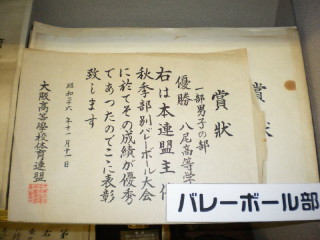 賞状
一部男子の部
優勝 八尾高等学
右は本連盟主催
秋季部別バレーボール大会
に於てその成績が優秀
であつたのでここに表彰
致します
昭和二十六年十一月十一日
大阪高等學校体育連盟
賞状
バレーボール部